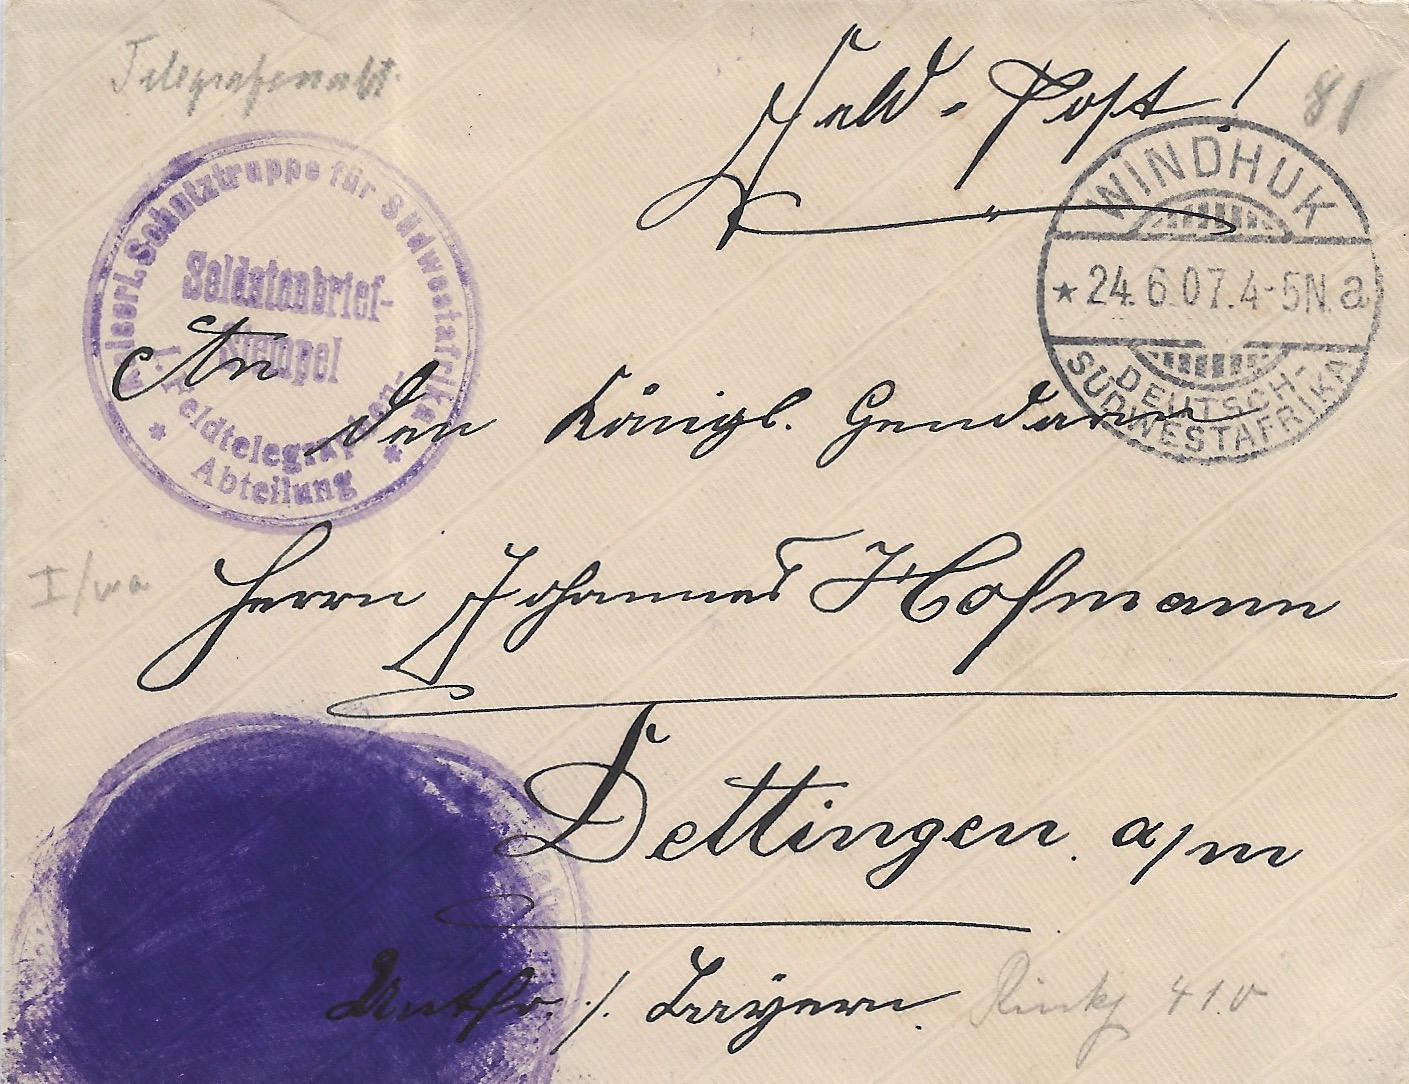 Telegrafenabt.
Feld-Post!
81
Kaiserl. Schutztruppe für Südwestafrika
Soldatenbrief-
Stempel
1. Feldtelegraphen-
Abteilung
WINDHUK
* 24.6.07.4-5N. a
DEUTSCH-
SÜDWESTAFRIKA
An
den Königl. Gendarm
Herrn Johannes Hofmann
Dettingen a/m
Untfr. /. Bayern.